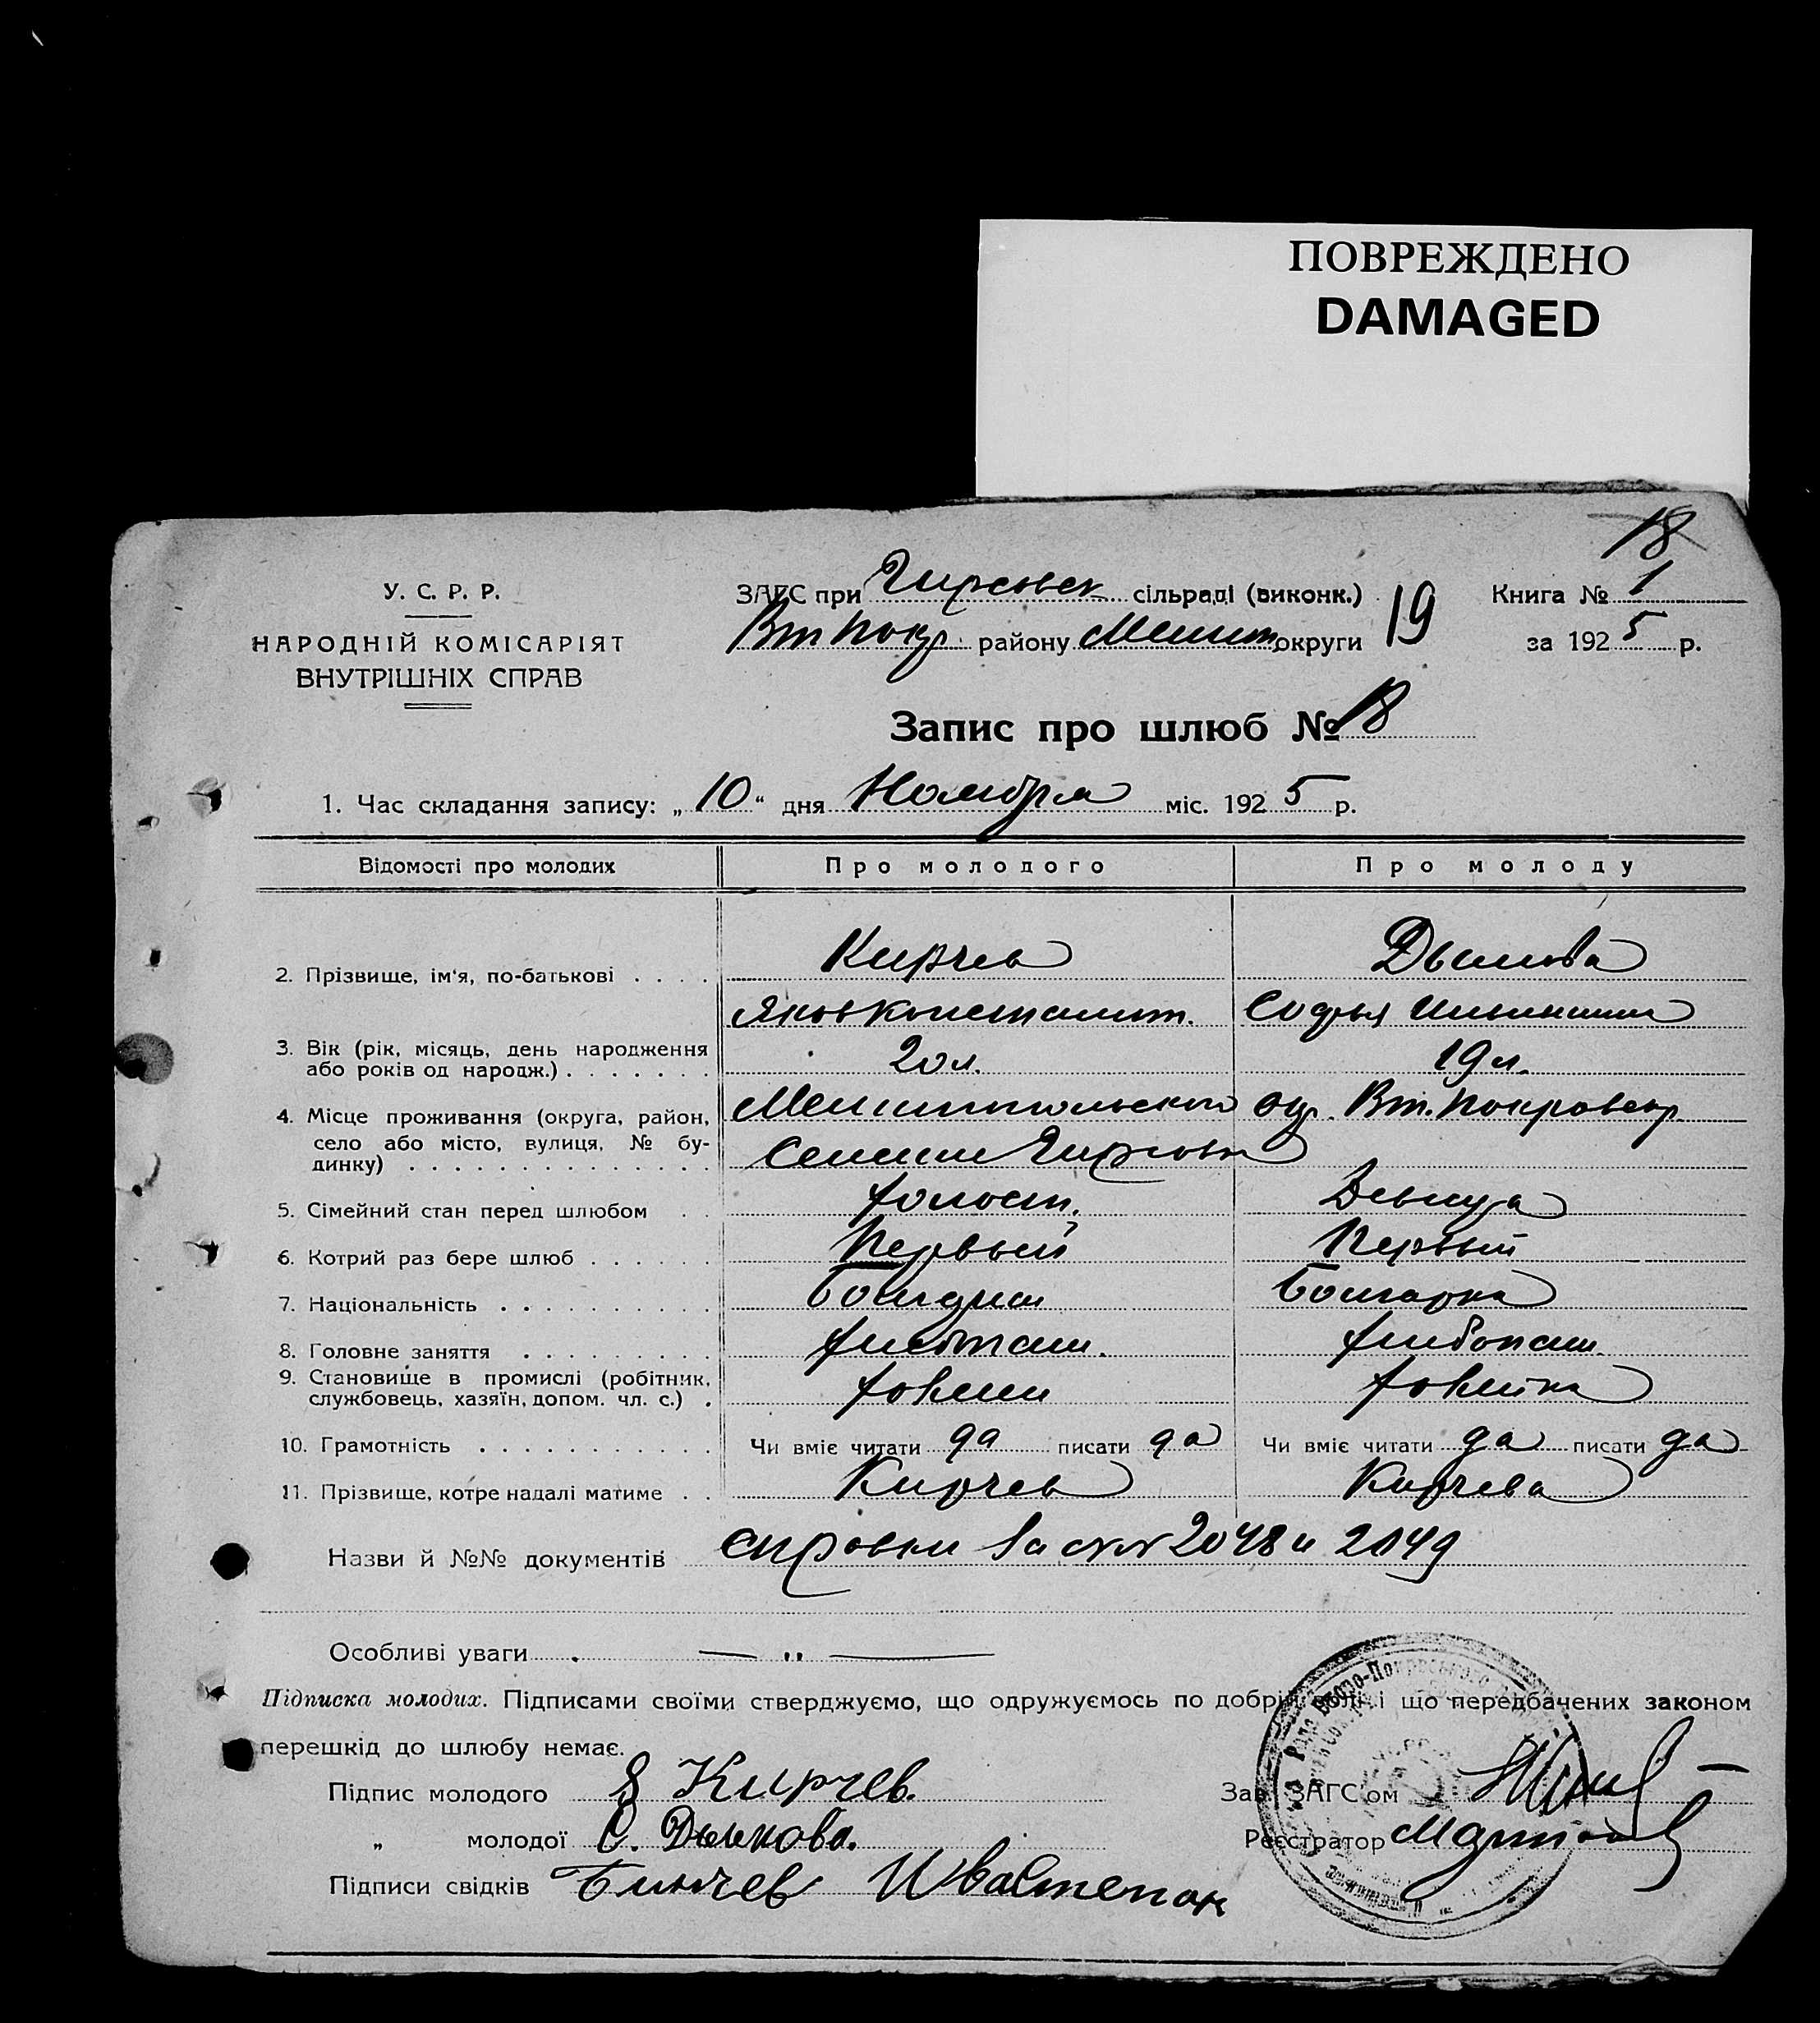 ПОВРЕЖДЕНО
DAMAGED
18
У. С. Р. Р.
НАРОДНІЙ КОМІСАРІЯТ
ВНУТРІШНІХ СПРАВ
ЗАГС при Гирсовск сільраді (виконк.)
Вт Покр. району Мелит округи 19
Книга № 1
за 1925 р.
Запис про шлюб № 18
1. Час складання запису: „10“ дня Ноября міс. 1925 р.
Відомості про молодих Про молодого Про молоду
2. Прізвище, ім'я, по-батькові . . . . Кирчев Дымова
Яков Констант. Софья
3. Вік (рік, місяць, день народження
або років од народж.) . . . . . . . 20 л. 19 л.
4. Місце проживання (округа, район,
село або місто, вулиця, № бу-
динку) . . . . . . . . . . . . . .
Мелитопольского окр. Вт. Покровск р
Селении Гирсовка
5. Сімейний стан перед шлюбом . . Холост. Девица
6. Котрий раз бере шлюб . . . . . . Первый Первый
7. Національність . . . . . . . . . . Болгарин Болгарка
8. Головне заняття . . . . . . . . . Хлебопаш. Хлебопаш.
9. Становище в промислі (робітник,
службовець, хазяїн, допом. чл. с.) . Хозяин Хозяйка
10. Грамотність . . . . . . . . . . . Чи вміє читати да писати да Чи вміє читати да писати да
11. Прізвище, котре надалі матиме . . Кирчев Кирчева
Назви й №№ документів справки за №№ 2048 и 2049
Особливі уваги . — „ —
Підписка молодих. Підписами своїми стверджуємо, що одружуємось по добрій волі і що передбачених законом
перешкід до шлюбу немає.
Підпис молодого Я Кирчев.
„ молодої С. Дымова.
Підписи свідків
Зав. ЗАГС'ом
Реєстратор